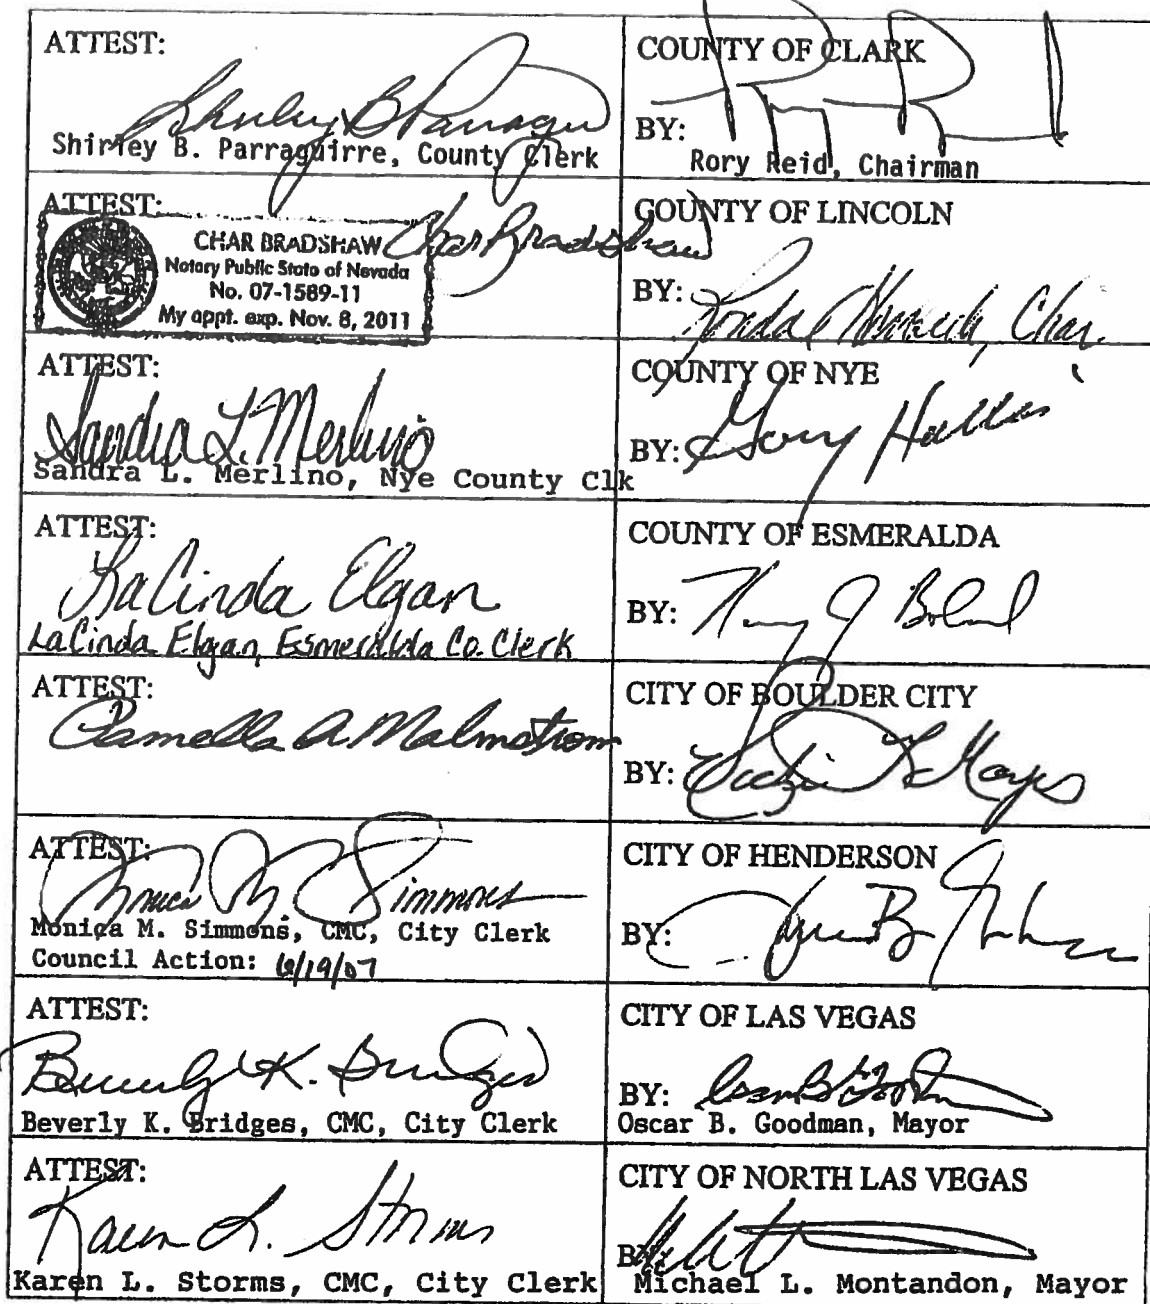 ATTEST:
Shirley B Parragui
Shirley B. Parraguirre, County Clerk
COUNTY OF CLARK
BY:
Rory Reid, Chairman
ATTEST:
CHAR BRADSHAW
Notary Public State of Nevada
No. 07-1589-11
My appt. exp. Nov. 8, 2011
Char Bradshaw
COUNTY OF LINCOLN
BY: Ronda Chair
ATTEST:
Sandra L. Merlino
Sandra L. Merlino, Nye County Clk
COUNTY OF NYE
BY: Gary Hollis
ATTEST:
LaCinda Elgan
LaCinda Elgan, Esmeralda Co. Clerk
COUNTY OF ESMERALDA
BY: J Boland
ATTEST:
Pamella A. Malmstrom
CITY OF BOULDER CITY
BY: Mayes
ATTEST:
Monica M. Simmons
Monica M. Simmons, CMC, City Clerk
Council Action: 6/19/07
CITY OF HENDERSON
BY:
ATTEST:
Beverly K. Bridges
Beverly K. Bridges, CMC, City Clerk
CITY OF LAS VEGAS
BY:
Oscar B. Goodman, Mayor
ATTEST:
Karen L. Storms
Karen L. Storms, CMC, City Clerk
CITY OF NORTH LAS VEGAS
BY:
Michael L. Montandon, Mayor